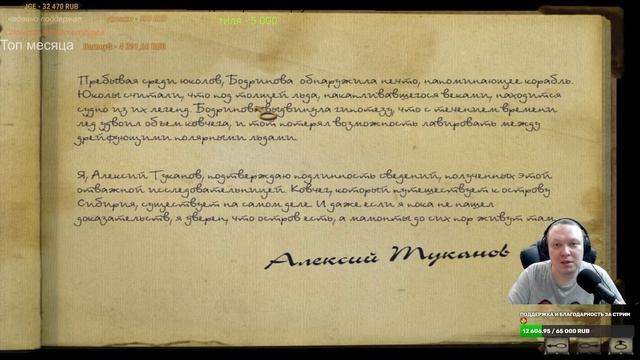 JGE - 32 470 RUB
тиля - 5 000
недавно поддержал
Топ месяца
Пребывая среди юколов, Бодринова обнаружила нечто, напоминающее корабль.
Юколы считали, что под толщей льда, накапливавшегося веками, находится
судно из их легенд. Бодринова выдвинула гипотезу, что с течением времени
лед удвоил объем ковчега, и тот потерял возможность лавировать между
дрейфующими полярными льдами.
Я, Алексий Туканов, подтверждаю подлинность сведений, полученных этой
отважной исследовательницей. Ковчег, который путешествует к острову
Сибирия, существует на самом деле. И даже если я пока не нашел
доказательств, я уверен, что остров есть, а мамонты до сих пор живут там.
Алексий Туканов
ПОДДЕРЖКА И БЛАГОДАРНОСТЬ ЗА СТРИМ
12 606.95 / 65 000 RUB